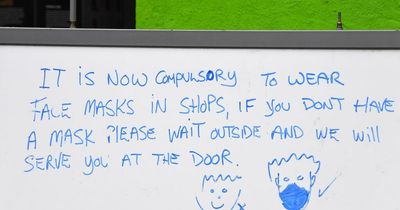 IT IS NOW COMPULSORY TO WEAR
FACE MASKS IN SHOPS, IF YOU DONT HAVE
A MASK PLEASE WAIT OUTSIDE AND WE WILL
SERVE YOU AT THE DOOR.